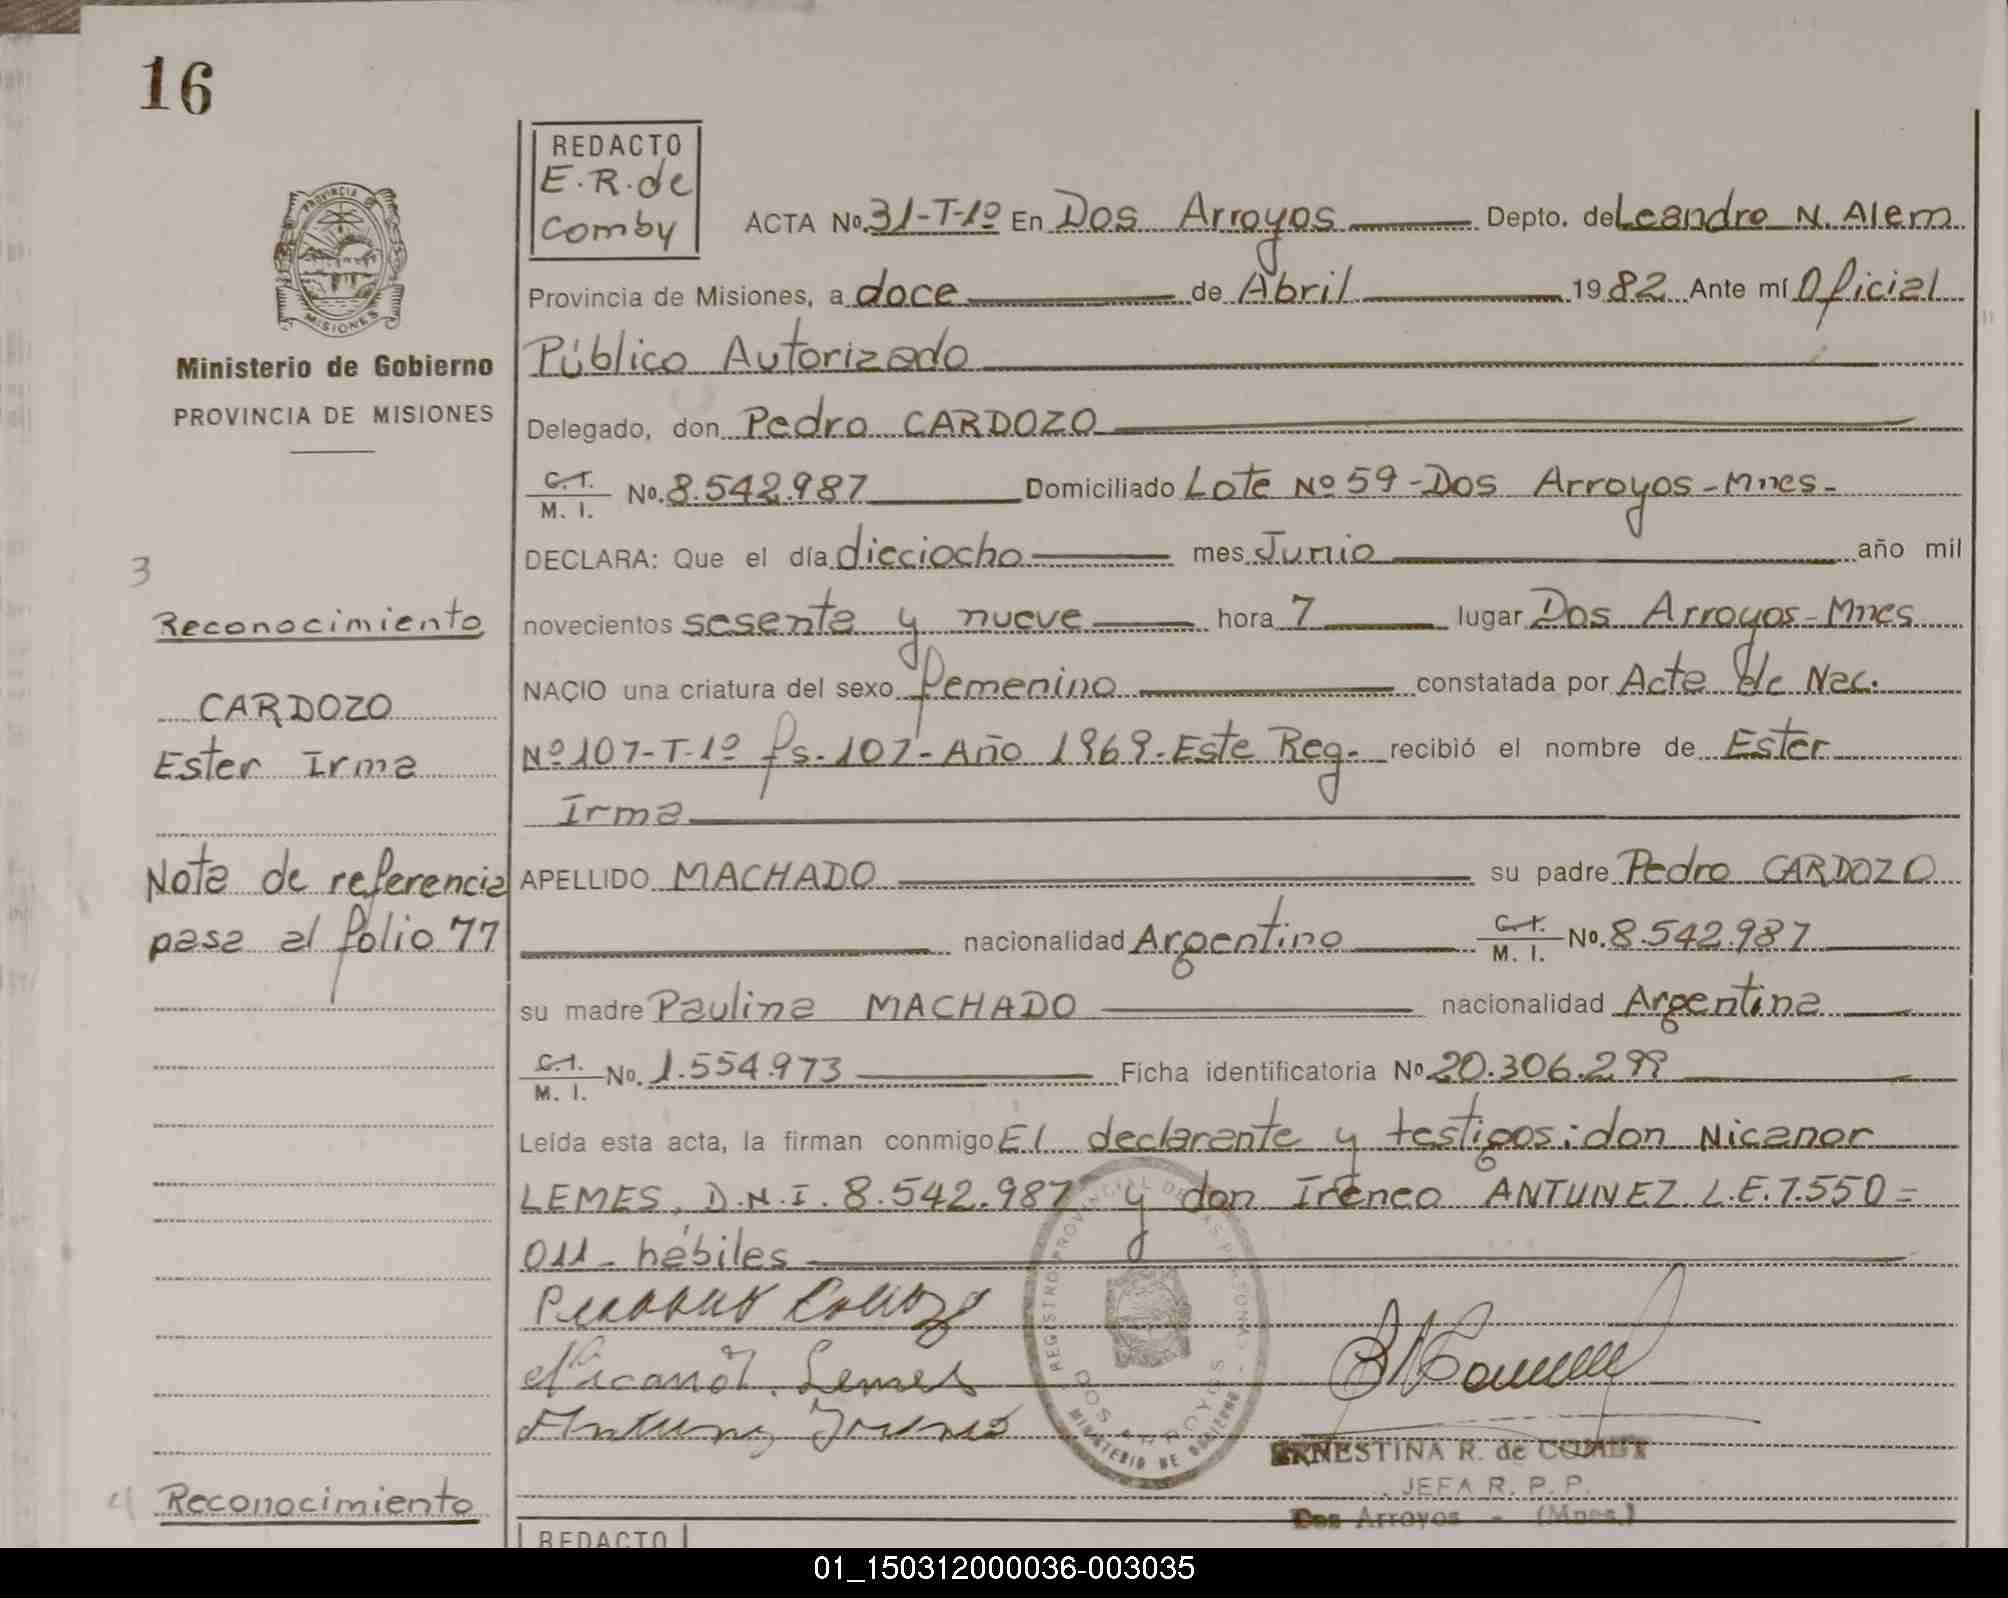 16
REDACTO
E.R. de
Comby
PROVINCIA DE
MISIONES
Ministerio de Gobierno
PROVINCIA DE MISIONES
ACTA No. 31-T-1º En Dos Arroyos Depto. de Leandro N. Alem
Provincia de Misiones, a doce de Abril 1982 Ante mí Oficial
Público Autorizado
Delegado, don Pedro CARDOZO
C.I. M. I. No. 8.542.987 Domiciliado Lote Nº 59-Dos Arroyos-Mnes-
DECLARA: Que el día dieciocho mes Junio año mil
novecientos sesenta y nueve hora 7 lugar Dos Arroyos-Mnes
NACIO una criatura del sexo femenino constatada por Acta de Nac.
Nº 107-T-1º fs. 107-Año 1969-Este Reg. recibió el nombre de Ester
Irma
APELLIDO MACHADO su padre Pedro CARDOZO
nacionalidad Argentino C.I. M. I. No. 8.542.987
su madre Paulina MACHADO nacionalidad Argentina
C.I. M. I. No. 1.554.973 Ficha identificatoria No 20.306.299
Leída esta acta, la firman conmigo El declarante y testigos: don Nicanor
LEMES, D.N.I. 8.542.987 y don Ireneo ANTUNEZ L.E. 7.550=
011- hábiles
3
Reconocimiento
CARDOZO
Ester Irma
Nota de referencia
pasa al folio 77
Nicanor Lemes
REGISTRO PROVINCIAL DE LAS PERSONAS
DOS ARROYOS
MINISTERIO DE GOBIERNO
ERNESTINA R. de COMBY
JEFA R. P. P.
Dos Arroyos - (Mnes.)
4 Reconocimiento
REDACTO
01_150312000036-003035